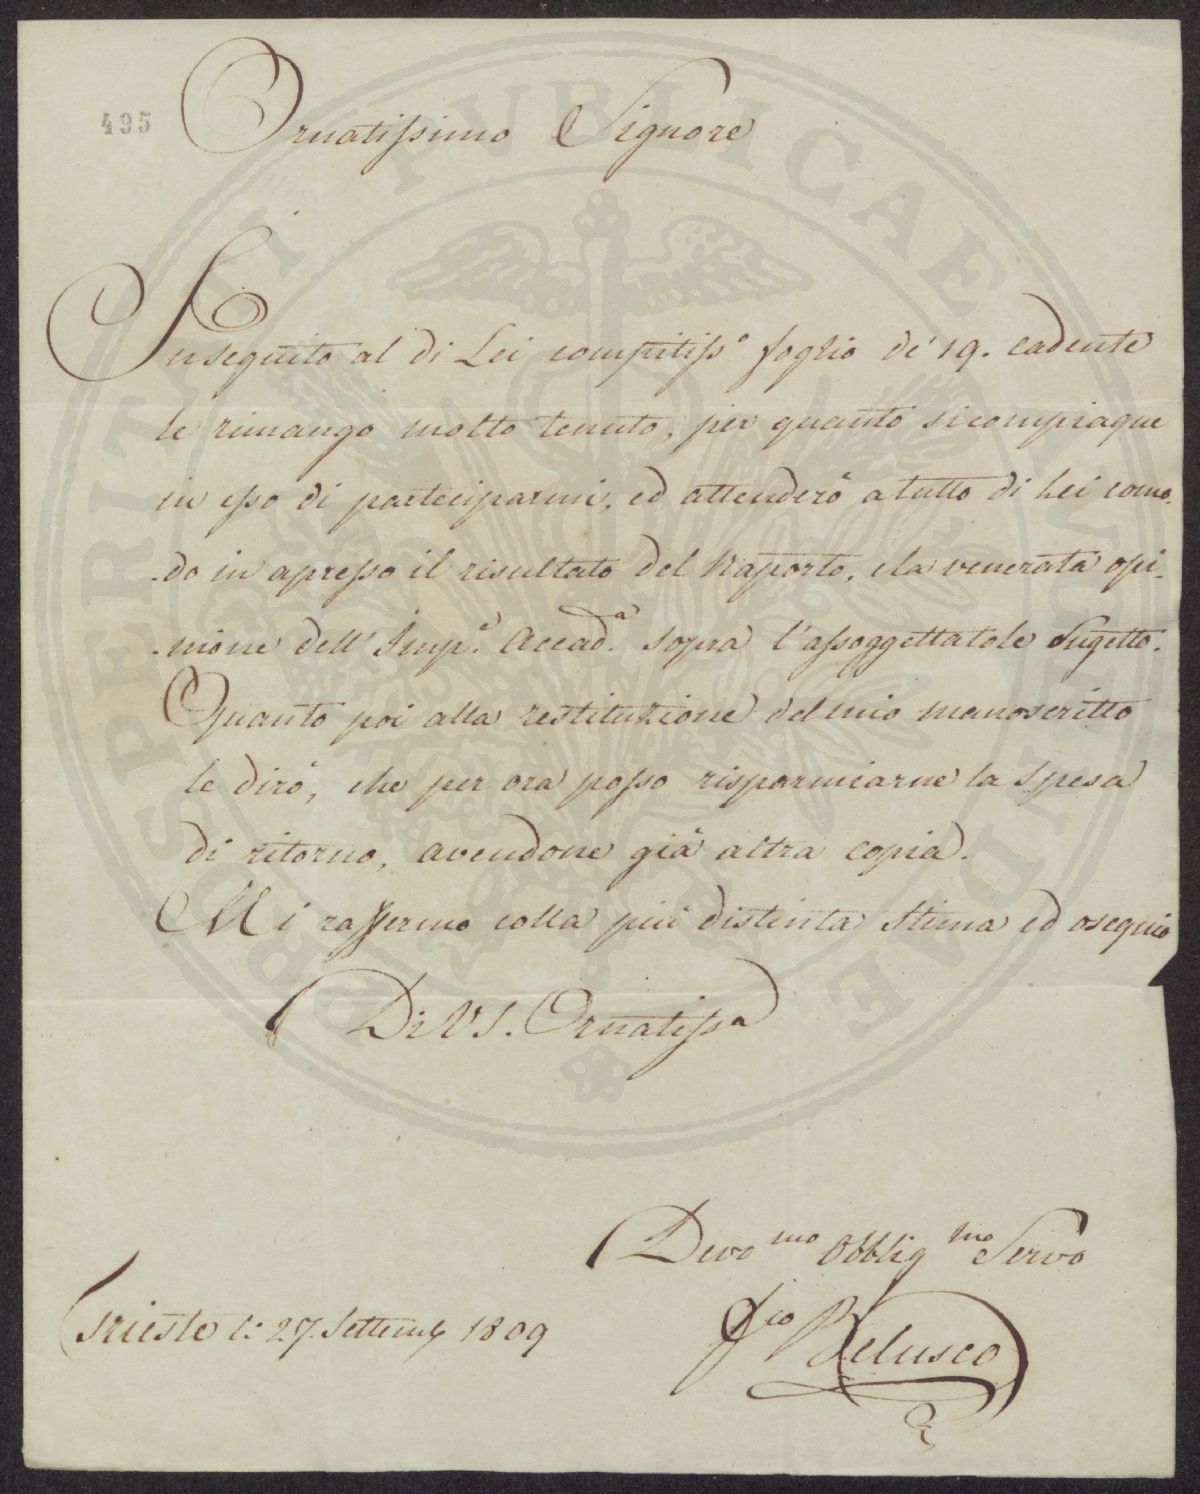 495
Ornatissimo Signore
Inseguito al di Lei compitiss.º foglio de' 19. cadente
le rimango molto tenuto, per quanto si compiaque
in esso di parteciparmi, ed attenderò a tutto di Lei como-
-do in apresso il risultato del Raporto, e la venerata opi-
-nione dell' Imp.e Accad.a sopra l'assoggettatole sugetto.
Quanto poi alla restituzione del mio manoscritto
le dirò, che per ora posso risparmiarne la spesa
di ritorno, avendone già altra copia.
Mi raffermo colla più distinta stima ed osequio
Di V S. Ornatissa
Devo mo Obblig mo Servo
Trieste li 27. Settemb 1809
Belusco